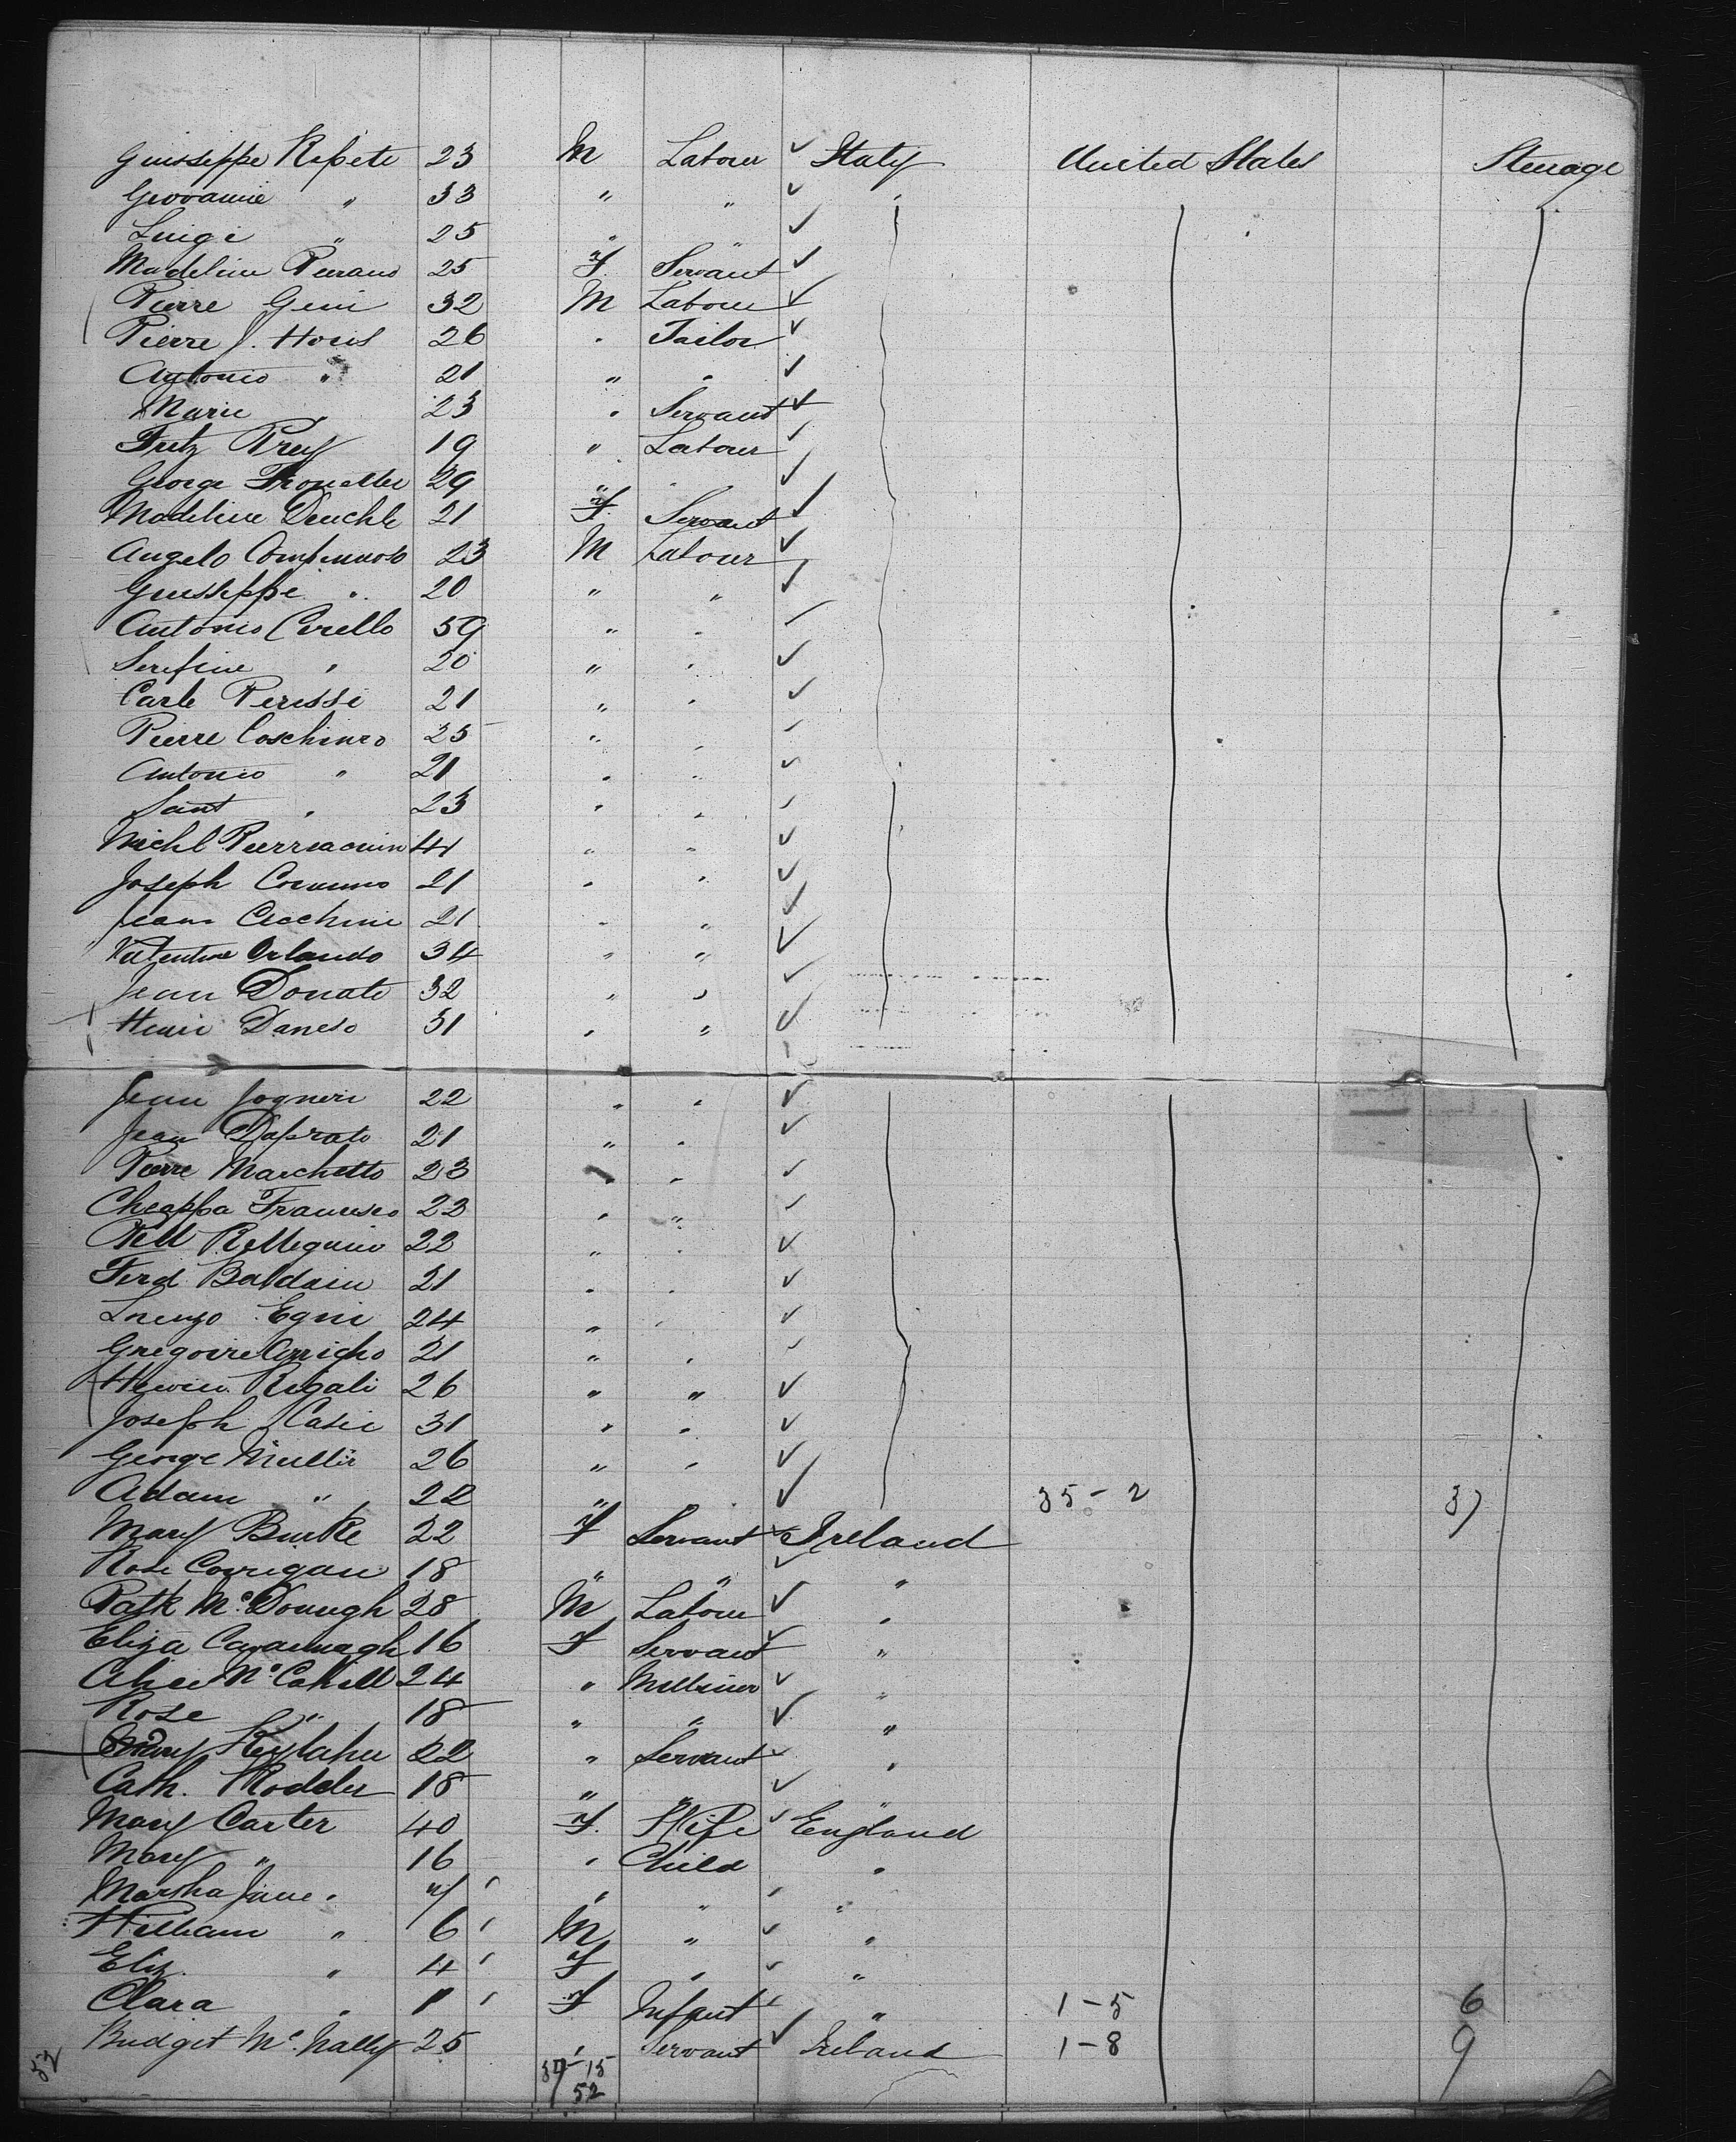 Guisseppe Repete 23 M Labour ✓ Italy United States Steerage
Giovannie " 33 " " ✓ "
Luigi " 25 " " ✓
Madeline Peirano 25 F. Servant ✓
Pierre Geni 32 M Labour ✓
Pierre J. Horis 26 " Tailor ✓
Antonio " 21 " " ✓
Marie " 23 " Servant ✓
Fritz Prey 19 " Labour ✓
George 29 " ✓
Madeline Deuchle 21 F. Servant ✓
Angelo 23 M Labour ✓
Guisseppe " 20 " " ✓
Antonio Cerello 59 " " ✓
Serefine " 20 " " ✓
Carle Perissi 21 " " ✓
Pierre Coschinro 25 " " ✓
Antonio " 21 " " ✓
Sant " 23 " " ✓
Michl 44 " " ✓
Joseph 21 " " ✓
Jean Cecchini 21 " " ✓
Valentine Orlando 34 " " ✓
Jean Donati 32 " " ✓
Henri Daneso 31 " " ✓
Jean Jogneri 22 " " ✓
Jean Daprato 21 " " ✓
Pierre Marchetto 23 " " ✓
Cheappa Francesco 23 " " ✓
Pellegrino 22 " " ✓
Ferd Baldain 21 " " ✓
Lorenzo Egni 24 " " ✓
Gregoire Arrigho 21 " " ✓
Henri Rigali 26 " " ✓
Joseph Casci 31 " " ✓
George Mullir 26 " " ✓
Adam " 22 " " ✓ 35-2 37
Mary Burke 22 F Servant ✓ Ireland
Rose Corrigan 18 " " ✓ "
Patk McDonugh 28 M Labour ✓ "
Eliza Cavannagh 16 F Servant ✓ "
Alice McCahill 24 " Milliner ✓ "
Rose " 18 " " ✓ "
Mary 22 " Servant ✓ "
Cath. Rodder 18 " " ✓ "
Mary Carter 40 F. Wife ✓ England
Mary " 16 " Child "
Martha Jane " " " ✓ "
William " 6 M " ✓ "
Eliz. " 4 F " ✓ "
Clara " 1 F Infant ✓ " 1-5 6
Bridget McNally 25 " Servant ✓ Ireland 1-8 9
52 37-15
52